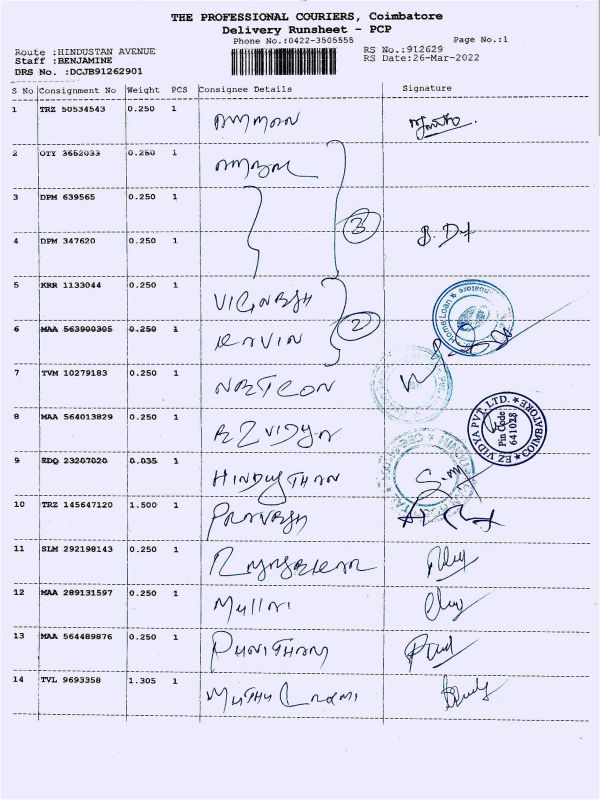 THE PROFESSIONAL COURIERS, Coimbatore
Delivery Runsheet - PCP
Phone No.:0422-3505555 Page No.:1
Route :HINDUSTAN AVENUE RS No.:912629
Staff :BENJAMINE RS Date:26-Mar-2022
DRS No. :DCJB91262901
S No Consignment No Weight PCS Consignee Details Signature
1 TRZ 50534543 0.250 1
2 OTY 3652033 0.250 1
3 DPM 639565 0.250 1
3
4 DPM 347620 0.250 1
5 KRR 1133044 0.250 1 VIGNESH
2
6 MAA 563900305 0.250 1 RAVIN
7 TVM 10279183 0.250 1
8 MAA 564013829 0.250 1 EZ VIDYA
EZ VIDYA PVT. LTD. COIMBATORE
Pin Code
641028
9 EDQ 23207020 0.035 1 HINDUSTHAN
10 TRZ 145647120 1.500 1 PRAVESH
11 SLM 292198143 0.250 1
12 MAA 289131597 0.250 1
13 MAA 564489876 0.250 1 PUNITHAM
14 TVL 9693358 1.305 1